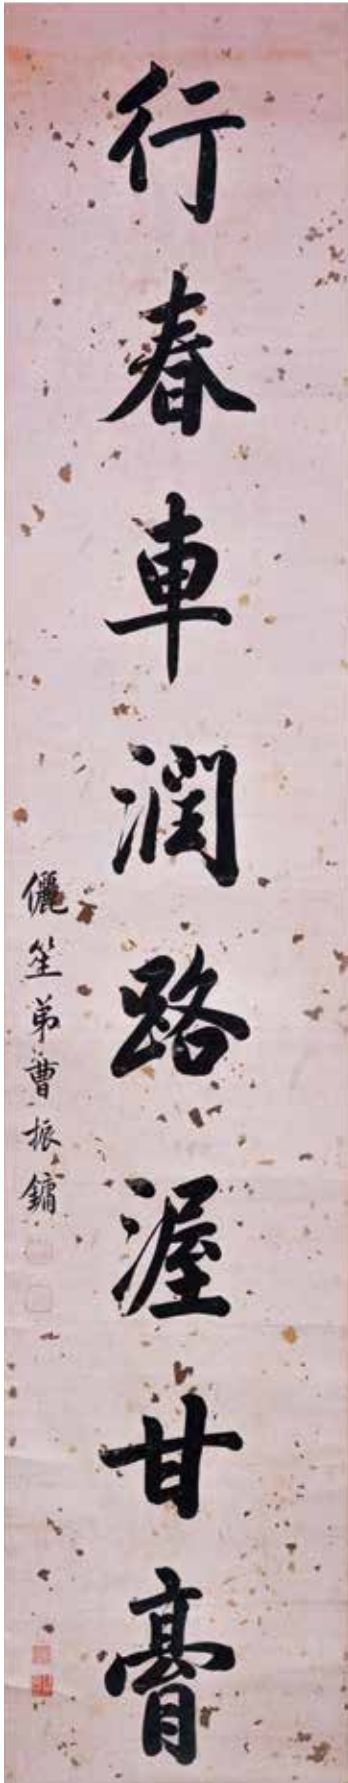 行春車潤路渥甘膏
儷笙弟曹振鏞